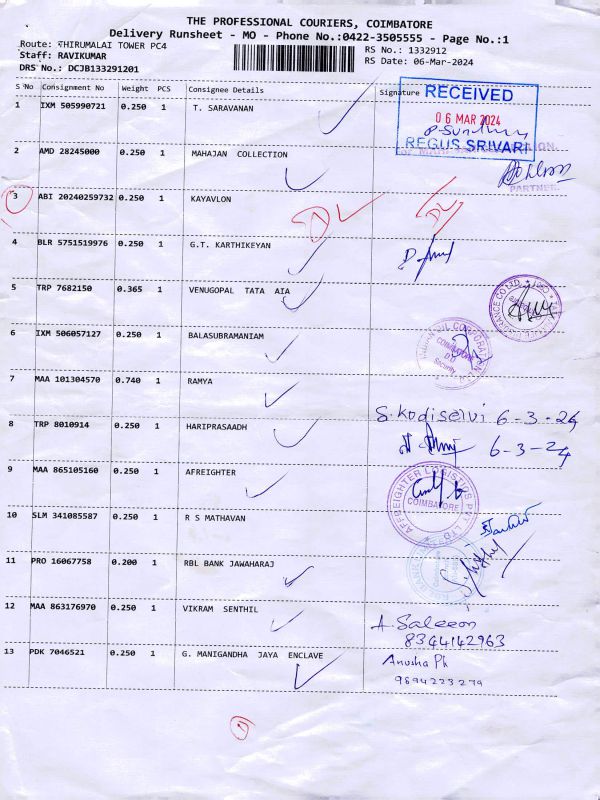 THE PROFESSIONAL COURIERS, COIMBATORE
Delivery Runsheet - MO - Phone No.:0422-3505555 - Page No.:1
Route: THIRUMALAI TOWER PC4
RS No.: 1332912
Staff: RAVIKUMAR
RS Date: 06-Mar-2024
DRS No.: DCJB133291201
S No Consignment No Weight PCS Consignee Details Signature
RECEIVED
06 MAR 2024
REGUS SRIVARI
1 IXM 505990721 0.250 1 T. SARAVANAN
2 AMD 28245000 0.250 1 MAHAJAN COLLECTION
PARTNER
3 ABI 20240259732 0.250 1 KAYAVLON
4 BLR 5751519976 0.250 1 G.T. KARTHIKEYAN
5 TRP 7682150 0.365 1 VENUGOPAL TATA AIA
6 IXM 506057127 0.250 1 BALASUBRAMANIAM
CORPORATION
COIMBATORE
D O
Security
7 MAA 101304570 0.740 1 RAMYA
S. Kodiselvi 6-3-24
8 TRP 8010914 0.250 1 HARIPRASAADH
6-3-24
9 MAA 865105160 0.250 1 AFREIGHTER
AFFREIGHTER LOGISTICS PVT LTD
COIMBATORE
10 SLM 341085587 0.250 1 R S MATHAVAN
11 PRO 16067758 0.200 1 RBL BANK JAWAHARAJ
12 MAA 863176970 0.250 1 VIKRAM SENTHIL
A. Saleeon
8344142963
13 PDK 7046521 0.250 1 G. MANIGANDHA JAYA ENCLAVE
Anusha Ph
9894223279